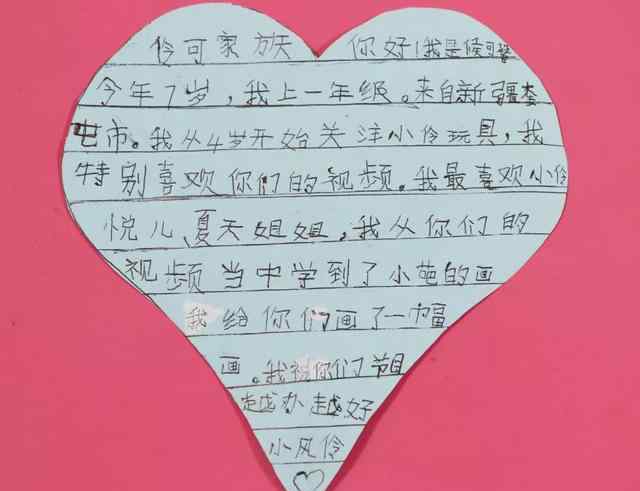 伶可家族 你好!我是候可馨
今年7岁,我上一年级。来自新疆奎
屯市。我从4岁开始关注小伶玩具,我
特别喜欢你们的视频。我最喜欢小伶
悦儿、夏天姐姐,我从你们的
视频当中学到了小苞的画
我给你们画了一幅
画。我祝你们节目
越办越好
小风伶